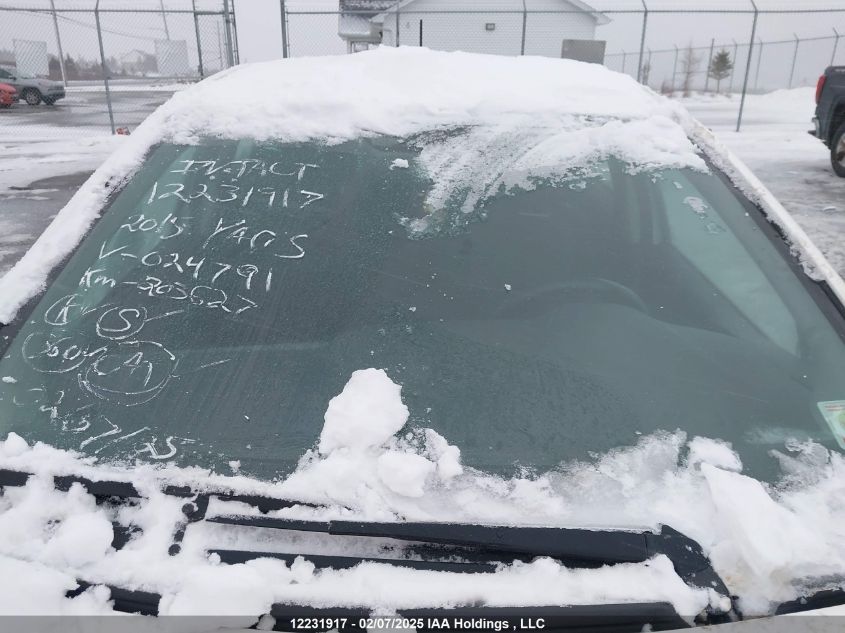 INTACT
12231917
2015 YARIS
V-024791
Km-203627
K S
360 A
02/07/25
12231917 - 02/07/2025 IAA Holdings, LLC